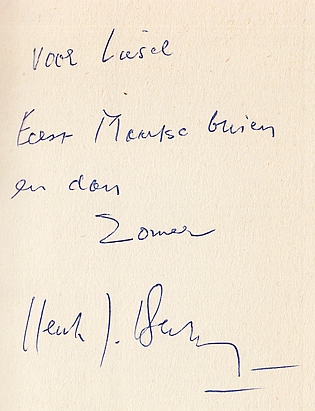 Voor Liesel
Eerst Maartse buien
en dan
Zomer
Henk J.